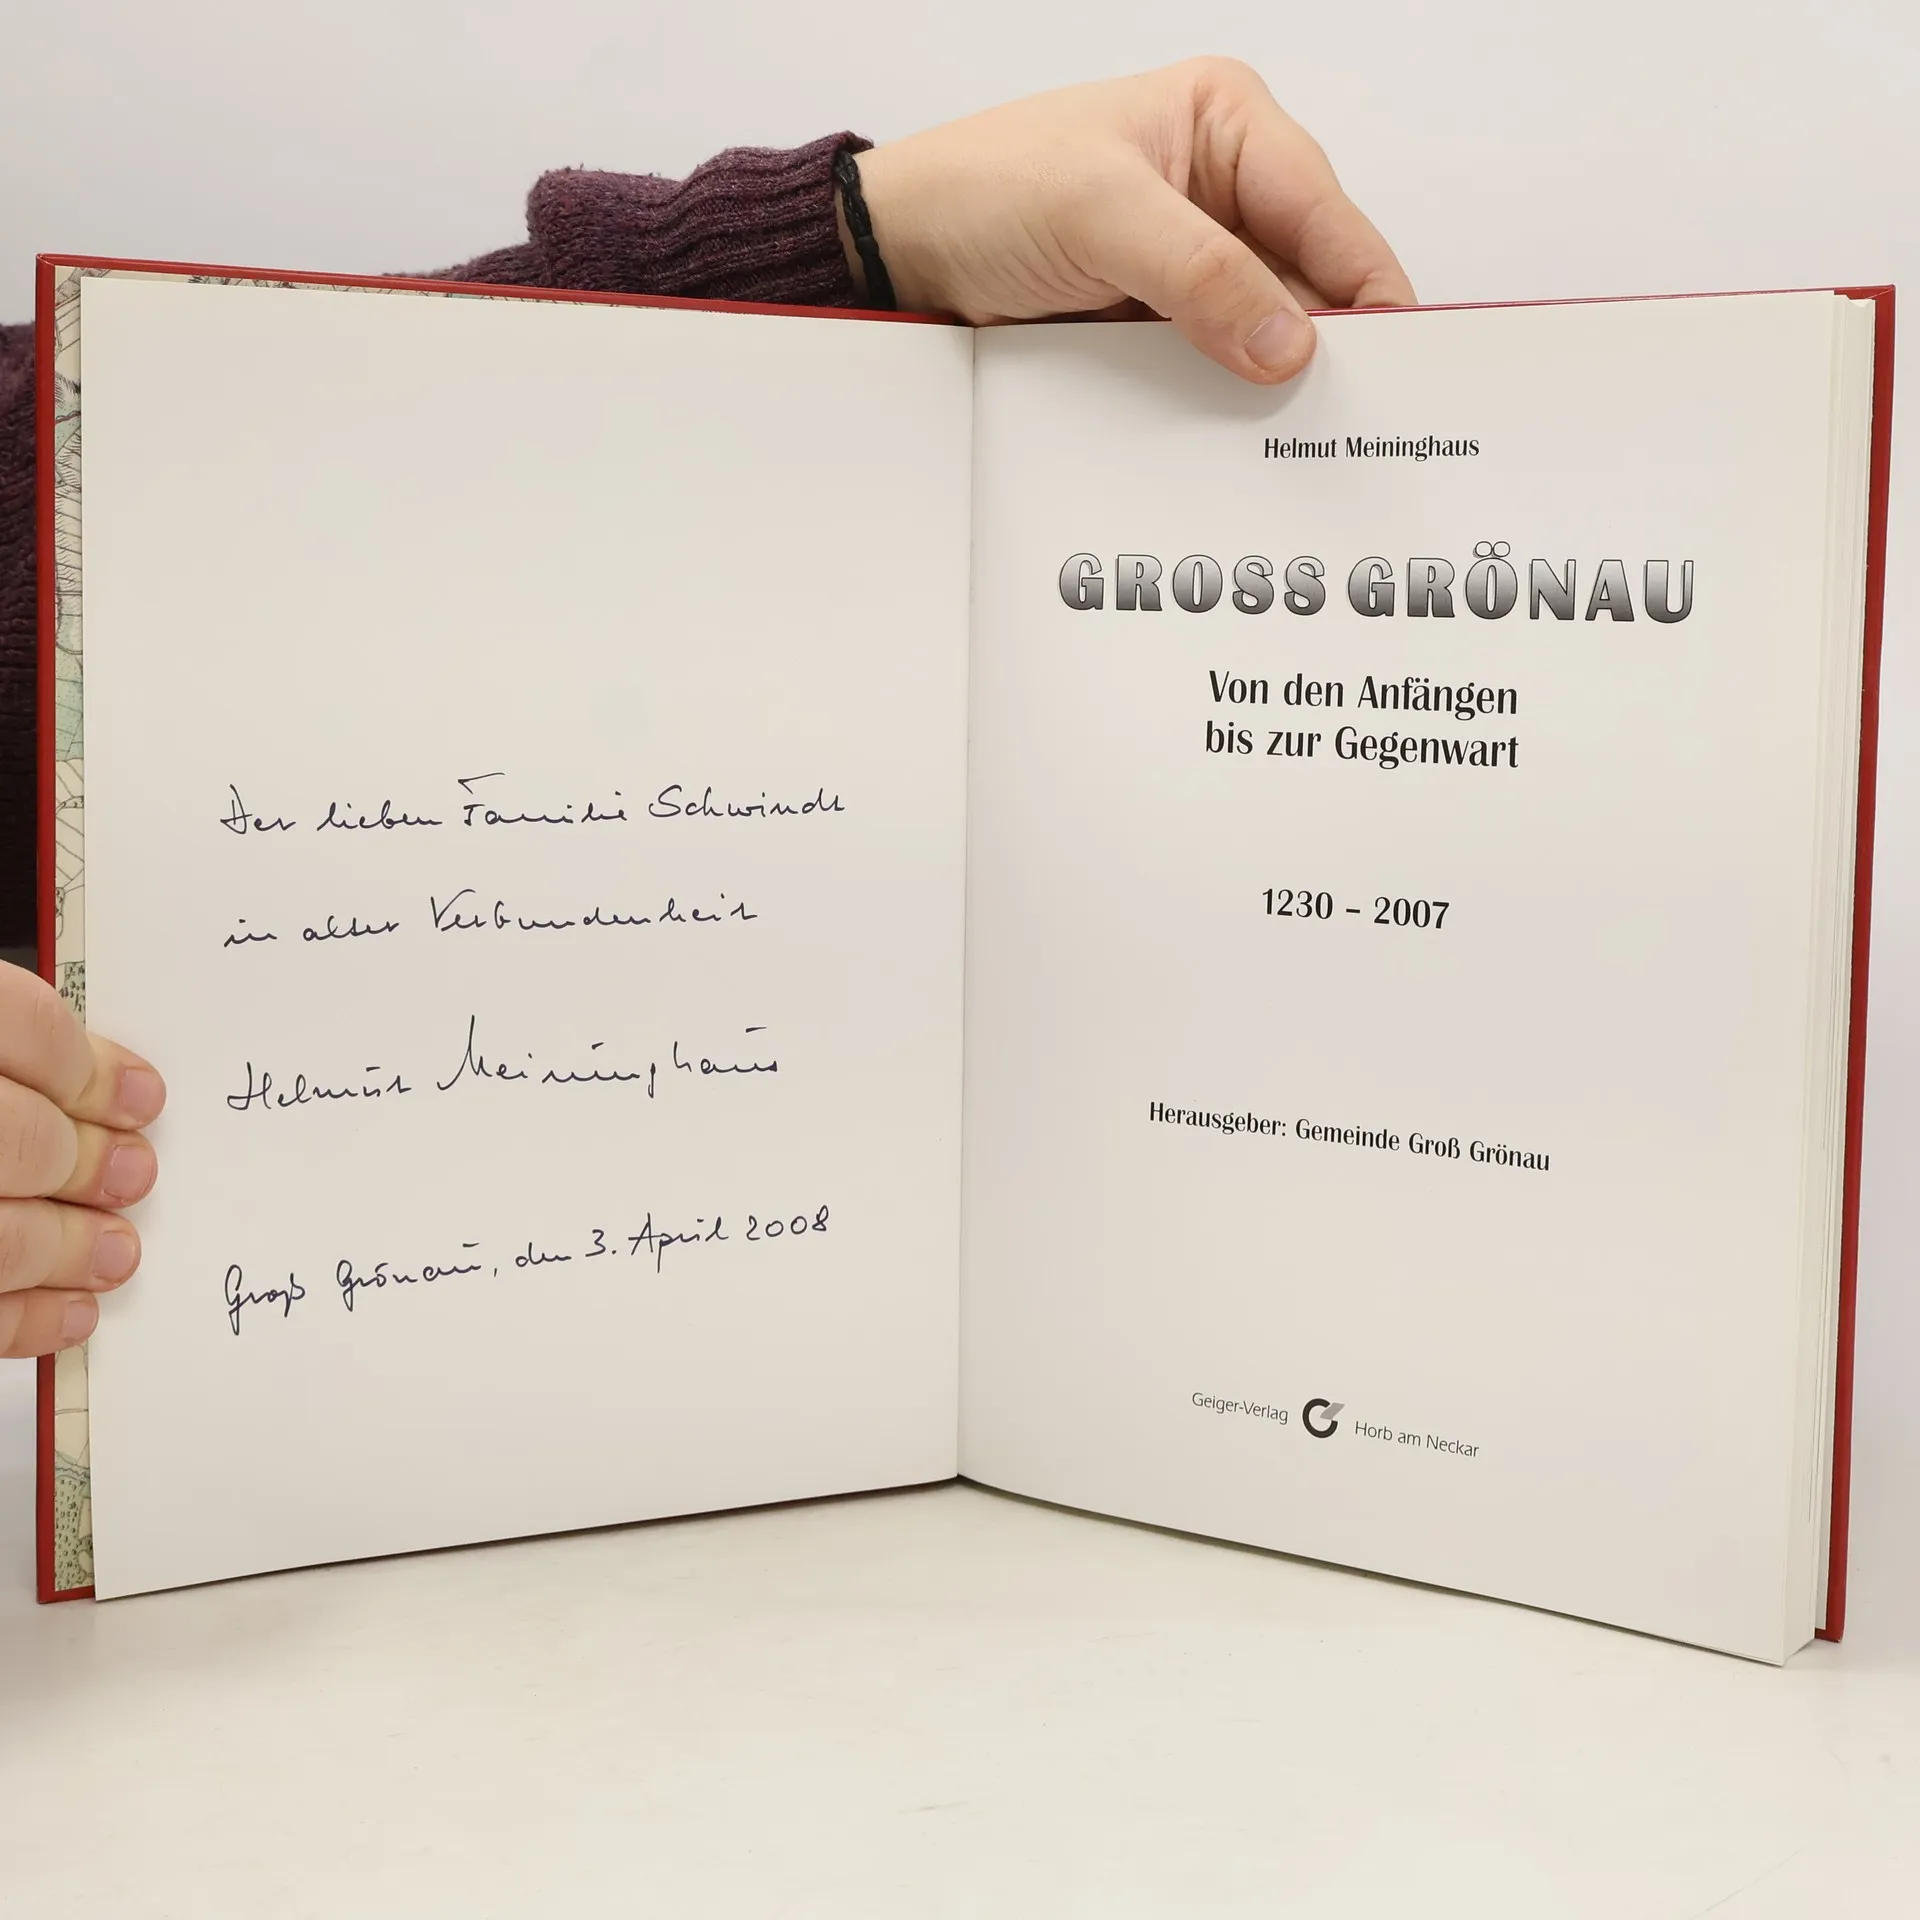 Der lieben Familie Schwindt
in alter Verbundenheit
Helmut Meininghaus
Groß Grönau, den 3. April 2008
Helmut Meininghaus
GROSS GRÖNAU
Von den Anfängen
bis zur Gegenwart
1230 – 2007
Herausgeber: Gemeinde Groß Grönau
Geiger-Verlag Horb am Neckar